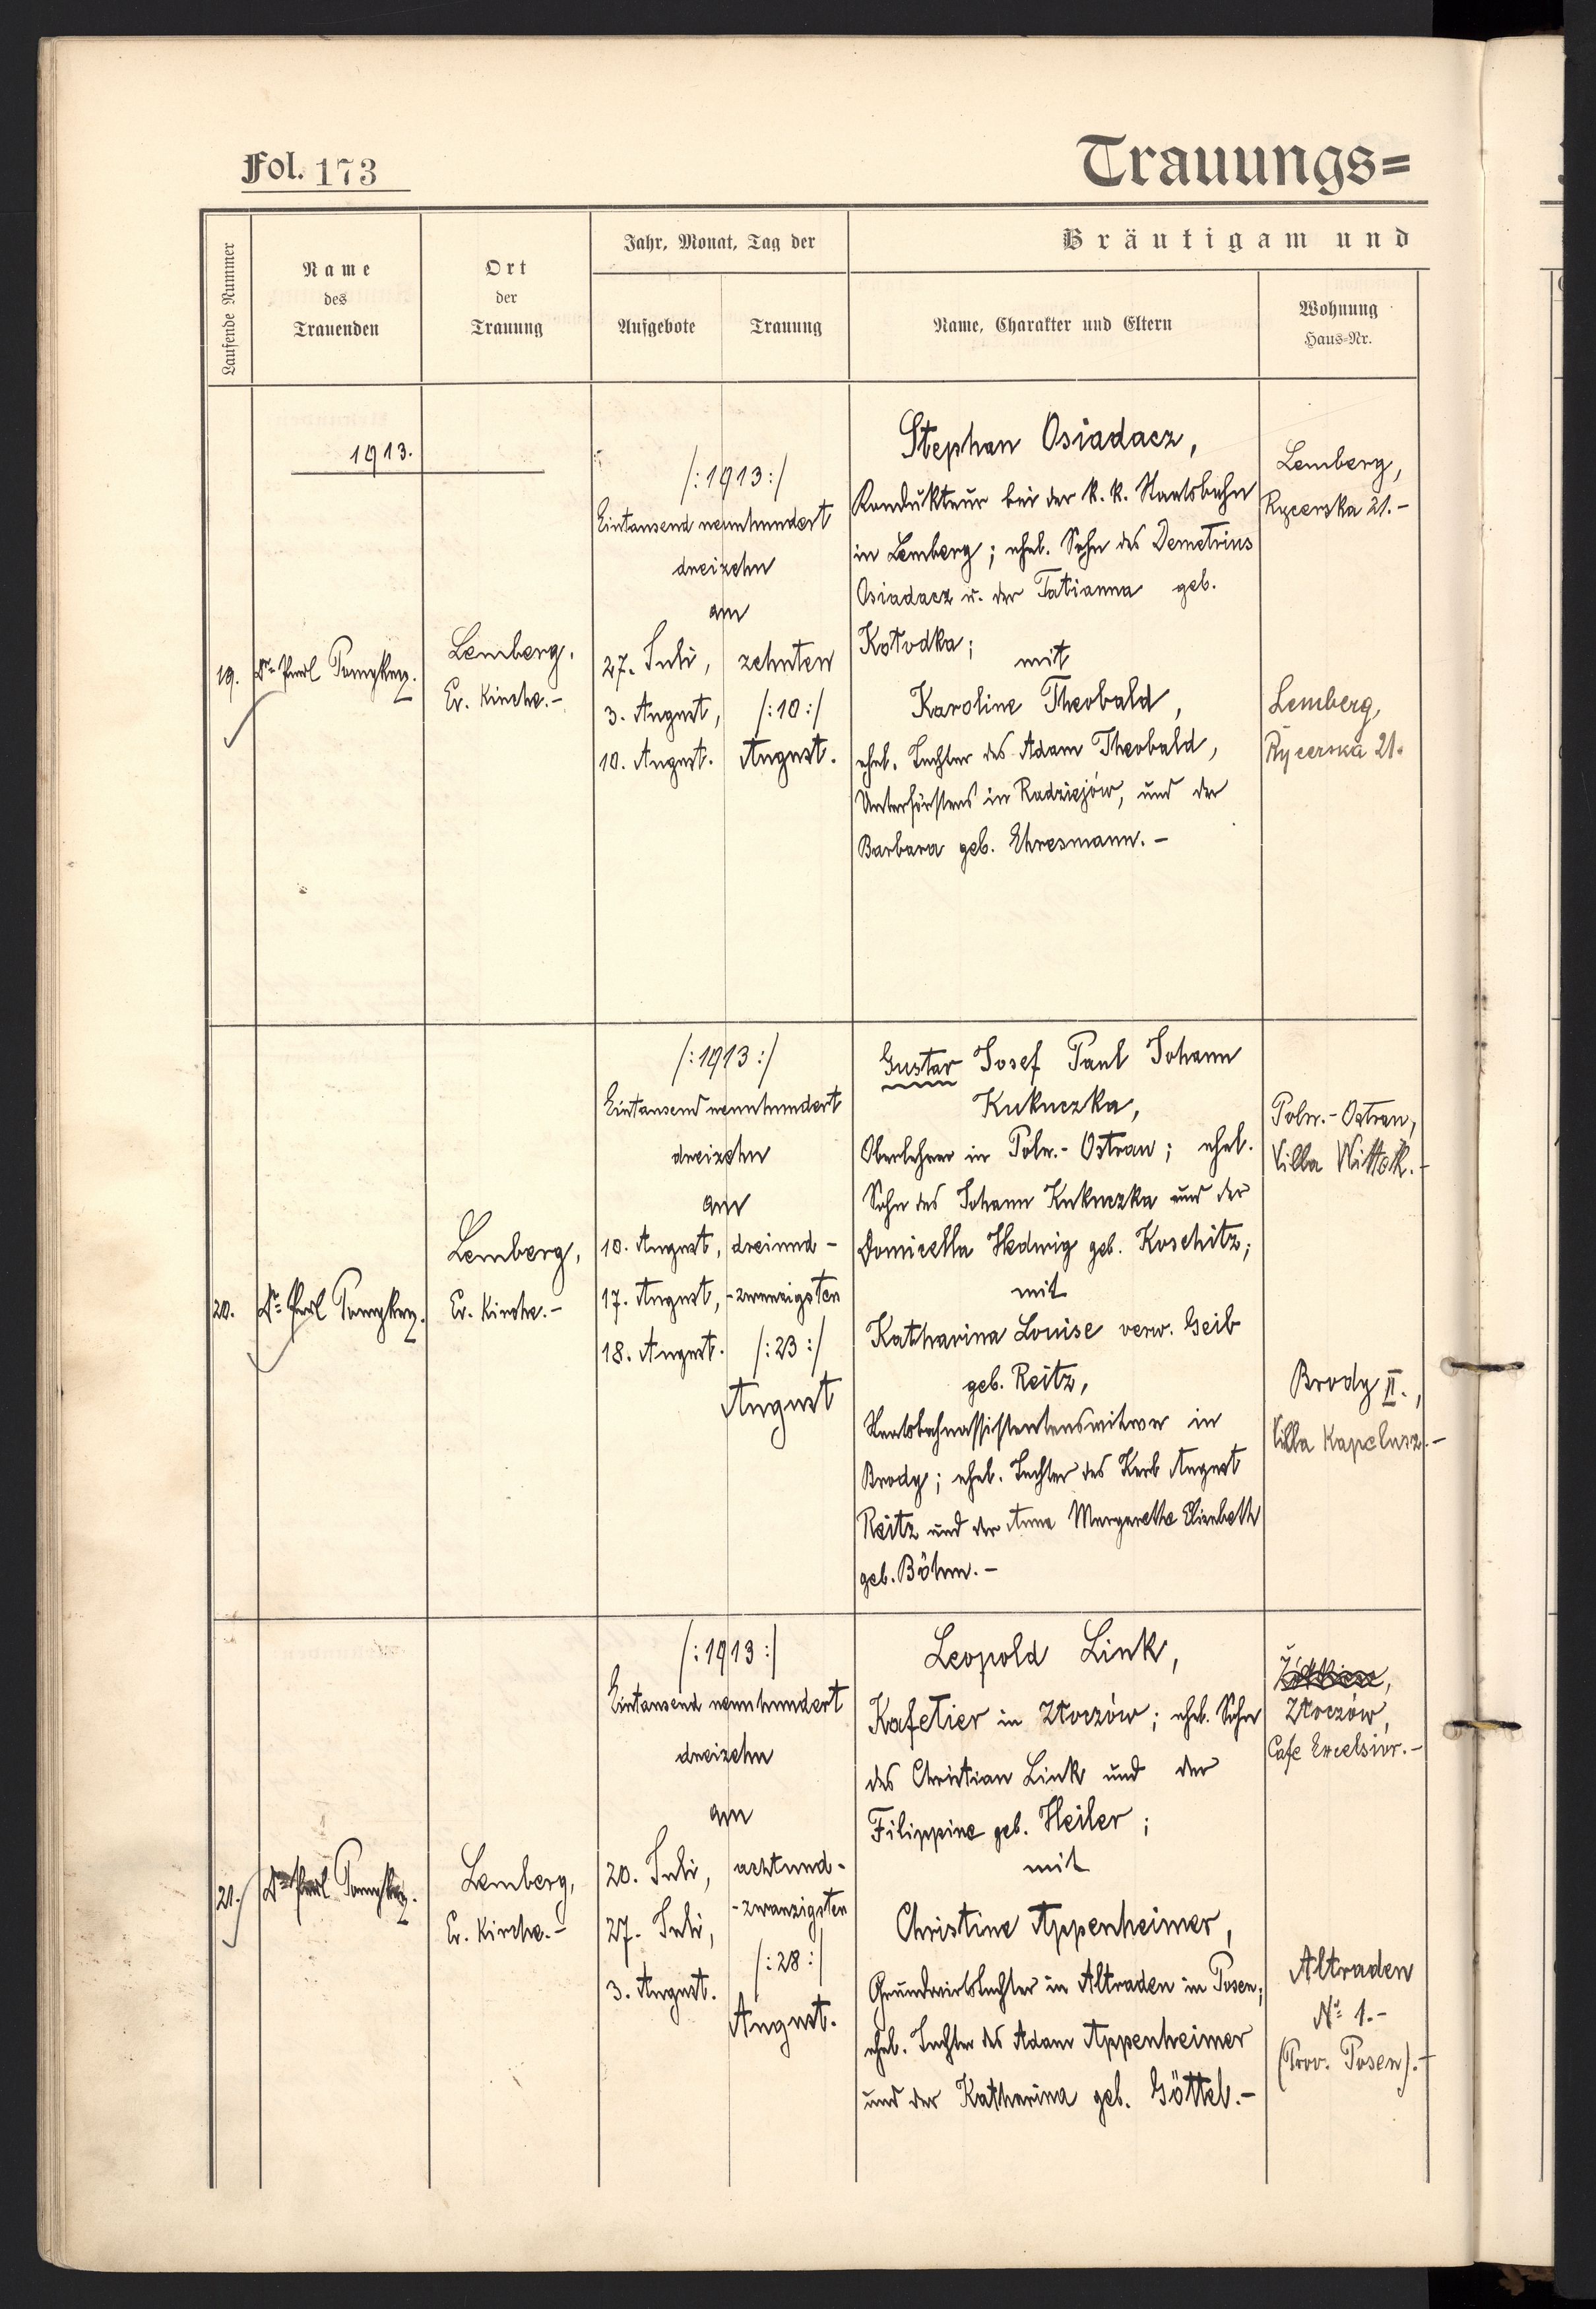 Fol. 173
Trauungs=
Laufende Nummer
Name
des
Trauenden
Ort
der
Trauung
Jahr, Monat, Tag der
Aufgebote
Trauung
Bräutigam und
Name, Charakter und Eltern
Wohnung
Haus=Nr.
1913.
19.
Dr. Paul
Lemberg,
Ev. Kirche.-
/:1913:/
Eintausend neunhundert
dreizehn
am
27. Juli,
3. August,
10. August.
zehnten
/:10:/
August.
Stephan Osiadacz,
Kondukteur bei der k. k. Staatsbahn
in Lemberg; ehel. Sohn des Demetrius
Osiadacz u. der Tatianna geb.
Kołodka;
mit
Karoline Theobald,
ehel. Tochter des Adam Theobald,
Unterförsters in Radziejów, und der
Barbara geb. Ehresmann.-
Lemberg,
Rycerska 21.-
Lemberg,
Rycerska 21.
20.
Dr. Paul
Lemberg,
Ev. Kirche.-
/:1913:/
Eintausend neunhundert
dreizehn
am
10. August,
17. August,
18. August.
dreiund-
-zwanzigsten
/:23:/
August
Gustav Josef Paul Johann
Kukuczka,
Oberlehrer in Poln.-Ostrau; ehel.
Sohn des Johann Kukuczka und der
Domicella Hedwig geb. Koschitz;
mit
Katharina Louise verw. Geib
geb. Reitz,
Staatsbahnassistentenswitwe in
Brody; ehel. Tochter des Karl August
Reitz und der Anna Margarethe Elisabeth
geb. Böhm.-
Poln.-Ostrau,
Villa Wittek.-
Brody II.,
Villa Kapelusz.-
21.
Dr. Paul
Lemberg,
Ev. Kirche.-
/:1913:/
Eintausend neunhundert
dreizehn
am
20. Juli,
27. Juli,
3. August.
achtund-
-zwanzigsten
/:28:/
August.
Leopold Link,
Kafetier in Złoczów; ehel. Sohn
des Christian Link und der
Filippine geb. Heiler;
mit
Christine Appenheimer,
Grundwirtstochter in Altraden in Posen;
ehel. Tochter des Adam Appenheimer
und der Katharina geb. Göttel.-
Złoczów,
Cafe Excelsior.-
Altraden
No 1.-
(Prov. Posen).-